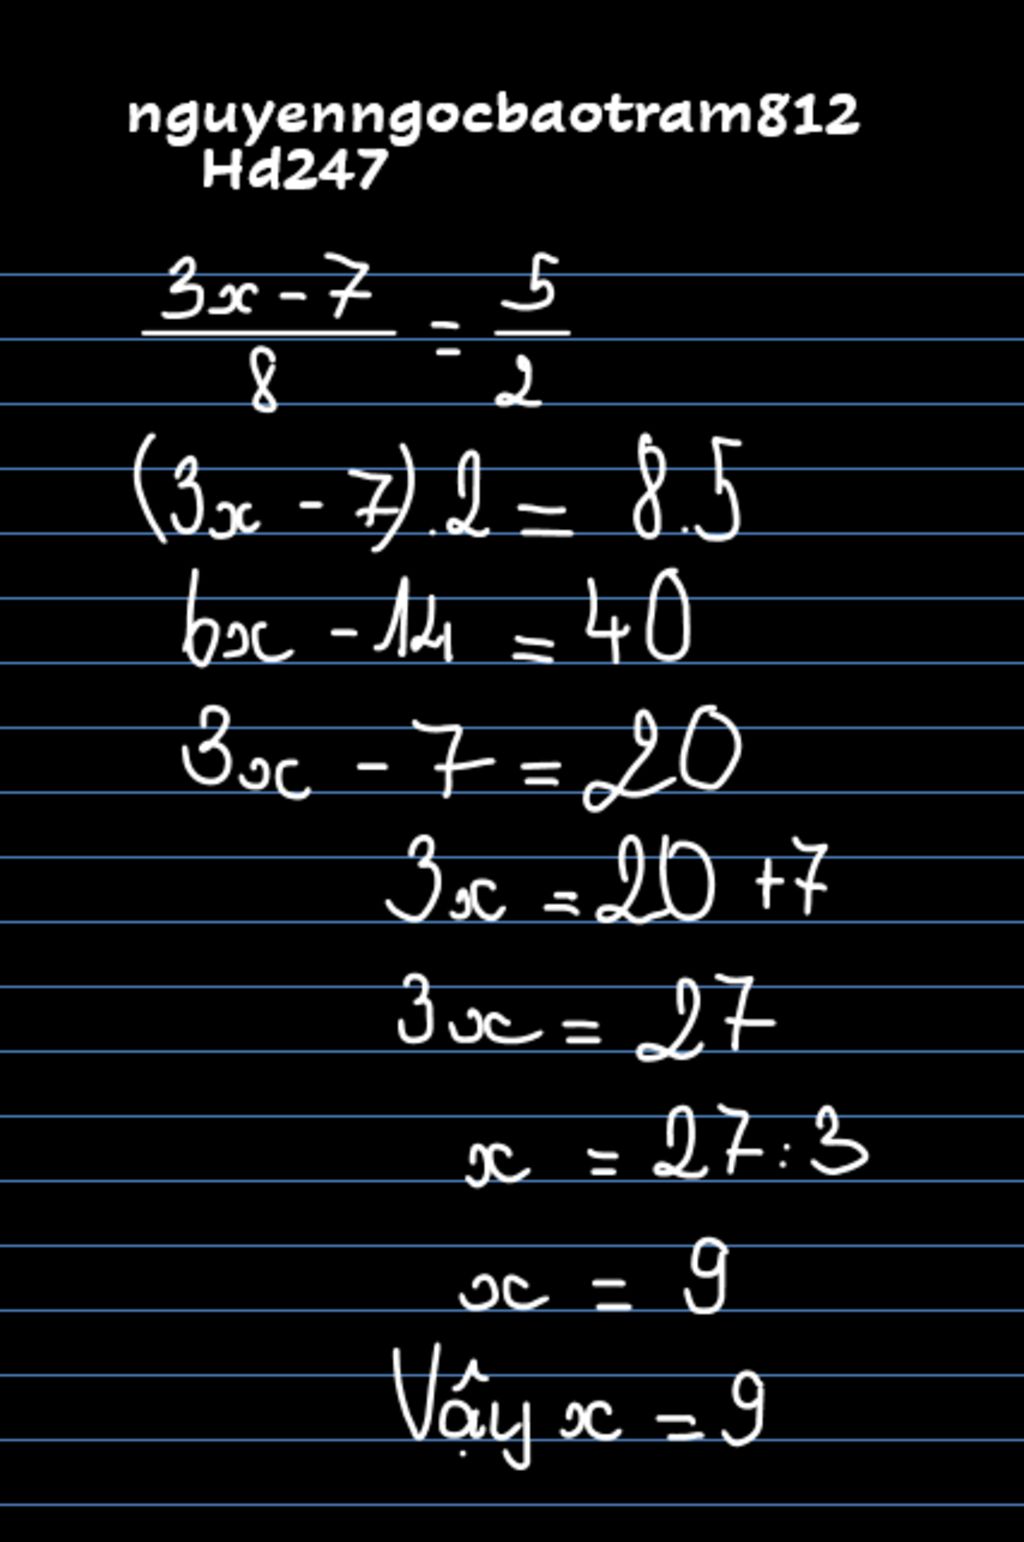 nguyenngocbaotram812
Hd247
(3x - 7)/8 = 5/2
(3x - 7).2 = 8.5
6x - 14 = 40
3x - 7 = 20
3x = 20 + 7
3x = 27
x = 27 : 3
x = 9
Vậy x = 9